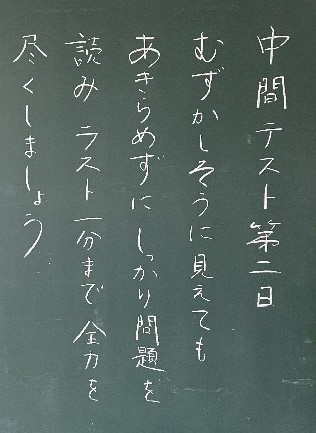 中間テスト第二日
むずかしそうに見えても
あきらめずにしっかり問題を
読み ラスト一分まで 全力を
尽くしましょう